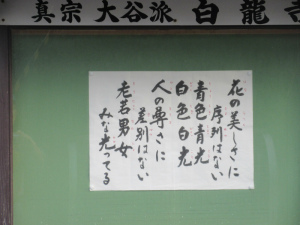 真宗 大谷派 白龍寺
花の美しさに
序列はない
青色青光
白色白光
人の尊さに
差別はない
老若男女
みな光ってる